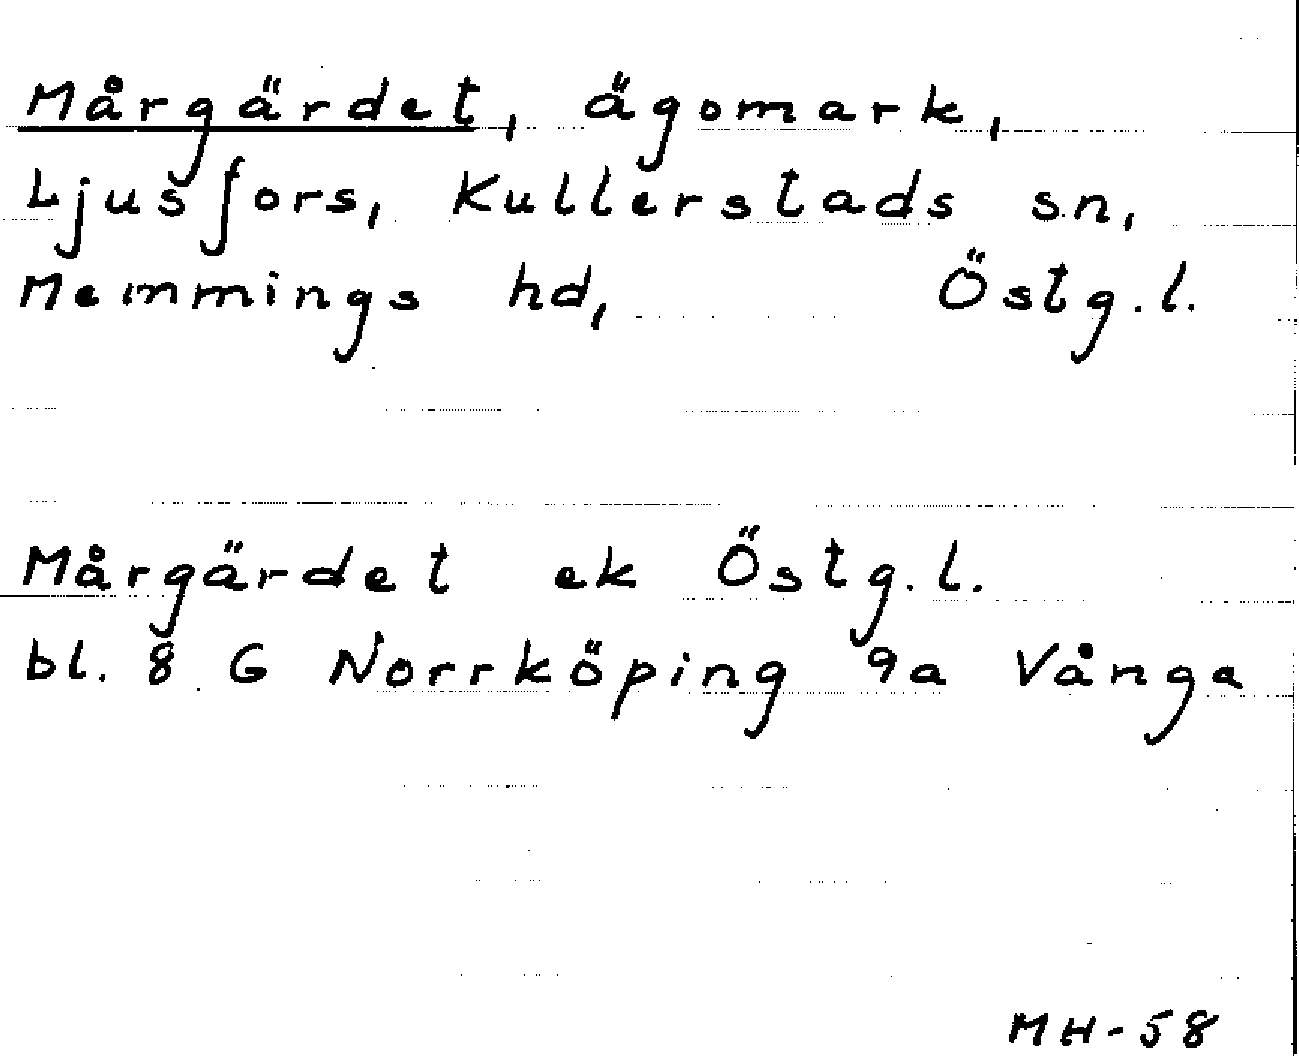 Mårgärdet, ägomark,
Ljusfors, Kullerstads sn,
Memmings hd, Östg.l.
Mårgärdet ek Östg.l.
bl. 8 G Norrköping 9a Vånga
MH-58